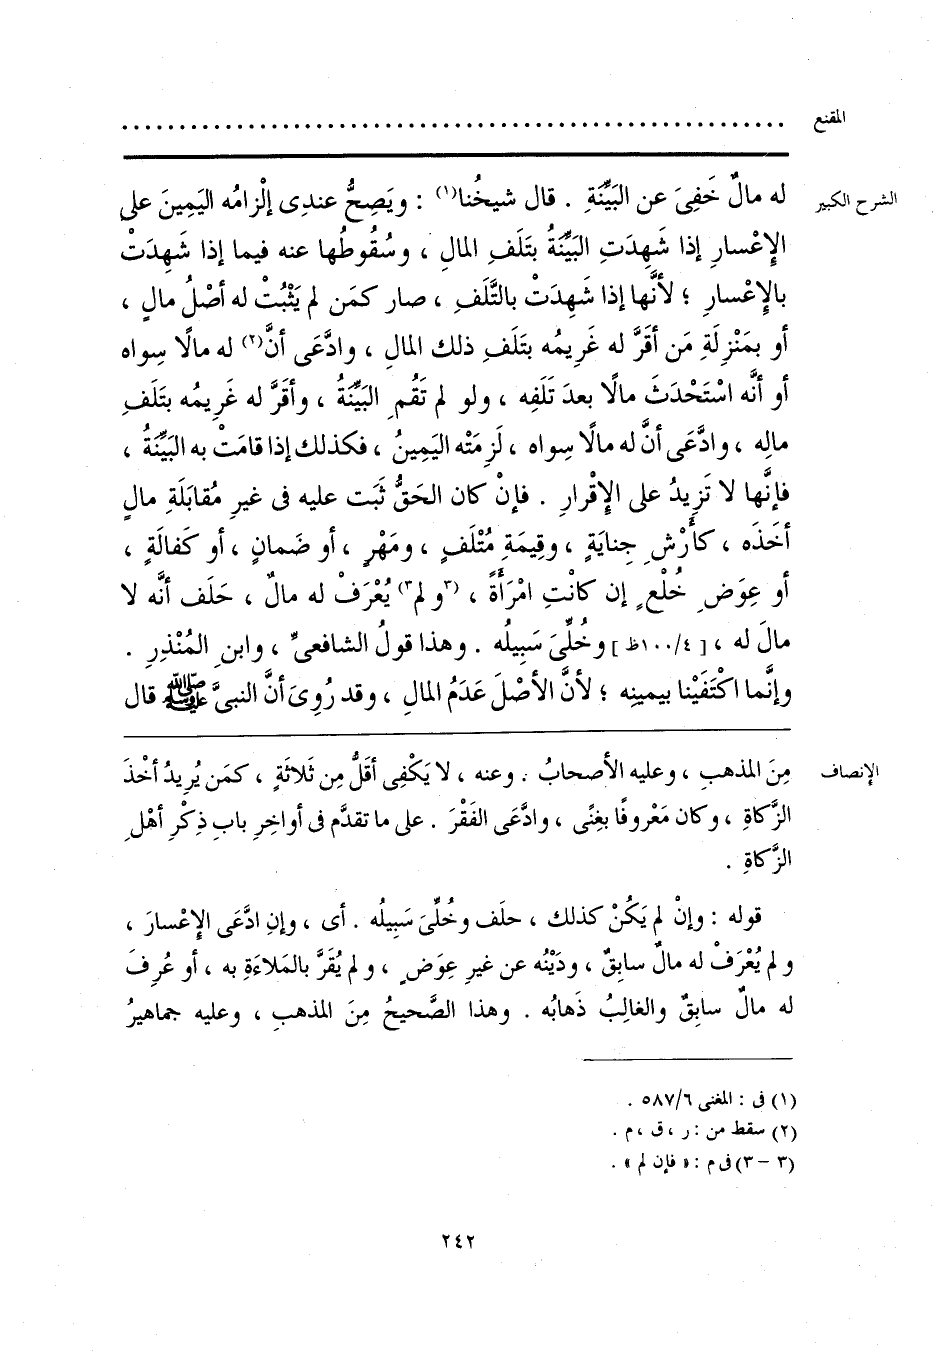 المقنع ........................................................
الشرح الكبير له مالٌ خَفِىَ عن البَيِّنَةِ . قال شيخُنا(١) : ويَصِحُّ عندِى إلْزامُه اليَمِينَ على
الإِعْسارِ إذا شَهِدَتِ البَيِّنَةُ بتَلَفِ المالِ ، وسُقُوطُها عنه فيما إذا شَهِدَتْ
بالإِعْسارِ ؛ لأنَّها إذا شَهِدَتْ بالتَّلَفِ ، صار كمَن لم يَثْبُتْ له أصْلُ مالٍ ،
أو بمَنْزِلَةِ مَن أقَرَّ له غَرِيمُه بتَلَفِ ذلك المالِ ، وادَّعَى أنَّ(٢) له مالًا سِواه
أو أنَّه اسْتَحْدَثَ مالًا بعدَ تَلَفِه ، ولو لم تَقُمِ البَيِّنَةُ ، وأقَرَّ له غَرِيمُه بتَلَفِ
مالِه ، وادَّعَى أنَّ له مالًا سِواه ، لَزِمَتْه اليَمِينُ ، فكذلك إذا قامَتْ به البَيِّنَةُ ،
فإنَّها لا تَزِيدُ على الإِقْرارِ . فإنْ كان الحَقُّ ثَبَت عليه فى غيرِ مُقابَلَةِ مالٍ
أخَذَه ، كأَرْشِ جِنايَةٍ ، وقِيمَةِ مُتْلَفٍ ، ومَهْرٍ ، أو ضَمانٍ ، أو كَفالَةٍ ،
أو عِوَضِ خُلْعٍ إن كانْتِ امْرَأَةً ، (٣ولم٣) يُعْرَفْ له مالٌ ، حَلَف أنَّه لا
مالَ له ، [ ١٠٠/٤ظ ] وخُلِّىَ سَبِيلُه . وهذا قولُ الشافعىِّ ، وابنِ المُنْذِرِ .
وإنَّما اكْتَفَيْنا بيمينِه ؛ لأنَّ الأصْلَ عَدَمُ المالِ ، وقد رُوِىَ أنَّ النبىَّ ﷺ قال
الإنصاف مِنَ المذهبِ ، وعليه الأصحابُ . وعنه ، لا يَكْفِى أقَلُّ مِن ثَلاثَةٍ ، كمَن يُرِيدُ أخْذَ
الزَّكاةِ ، وكان مَعْروفًا بغِنًى ، وادَّعَى الفَقْرَ . على ما تقدَّم فى أواخِرِ بابِ ذِكْرِ أهْلِ
الزَّكاةِ .
قوله : وإنْ لم يَكُنْ كذلك ، حلَف وخُلِّىَ سَبِيلُه . أى ، وإنِ ادَّعَى الإِعْسارَ ،
ولم يُعْرَفْ له مالٌ سابِقٌ ، ودَيْنُه عن غيرِ عِوَضٍ ، ولم يُقَرَّ بالمَلاءَةِ به ، أو عُرِفَ
له مالٌ سابِقٌ والغالِبُ ذَهابُه . وهذا الصَّحيحُ مِنَ المذهبِ ، وعليه جماهيرُ
(١) فى : المغنى ٥٨٧/٦ .
(٢) سقط من : ر ، ق ، م .
(٣ - ٣) فى م : « فإن لم » .
٢٤٢